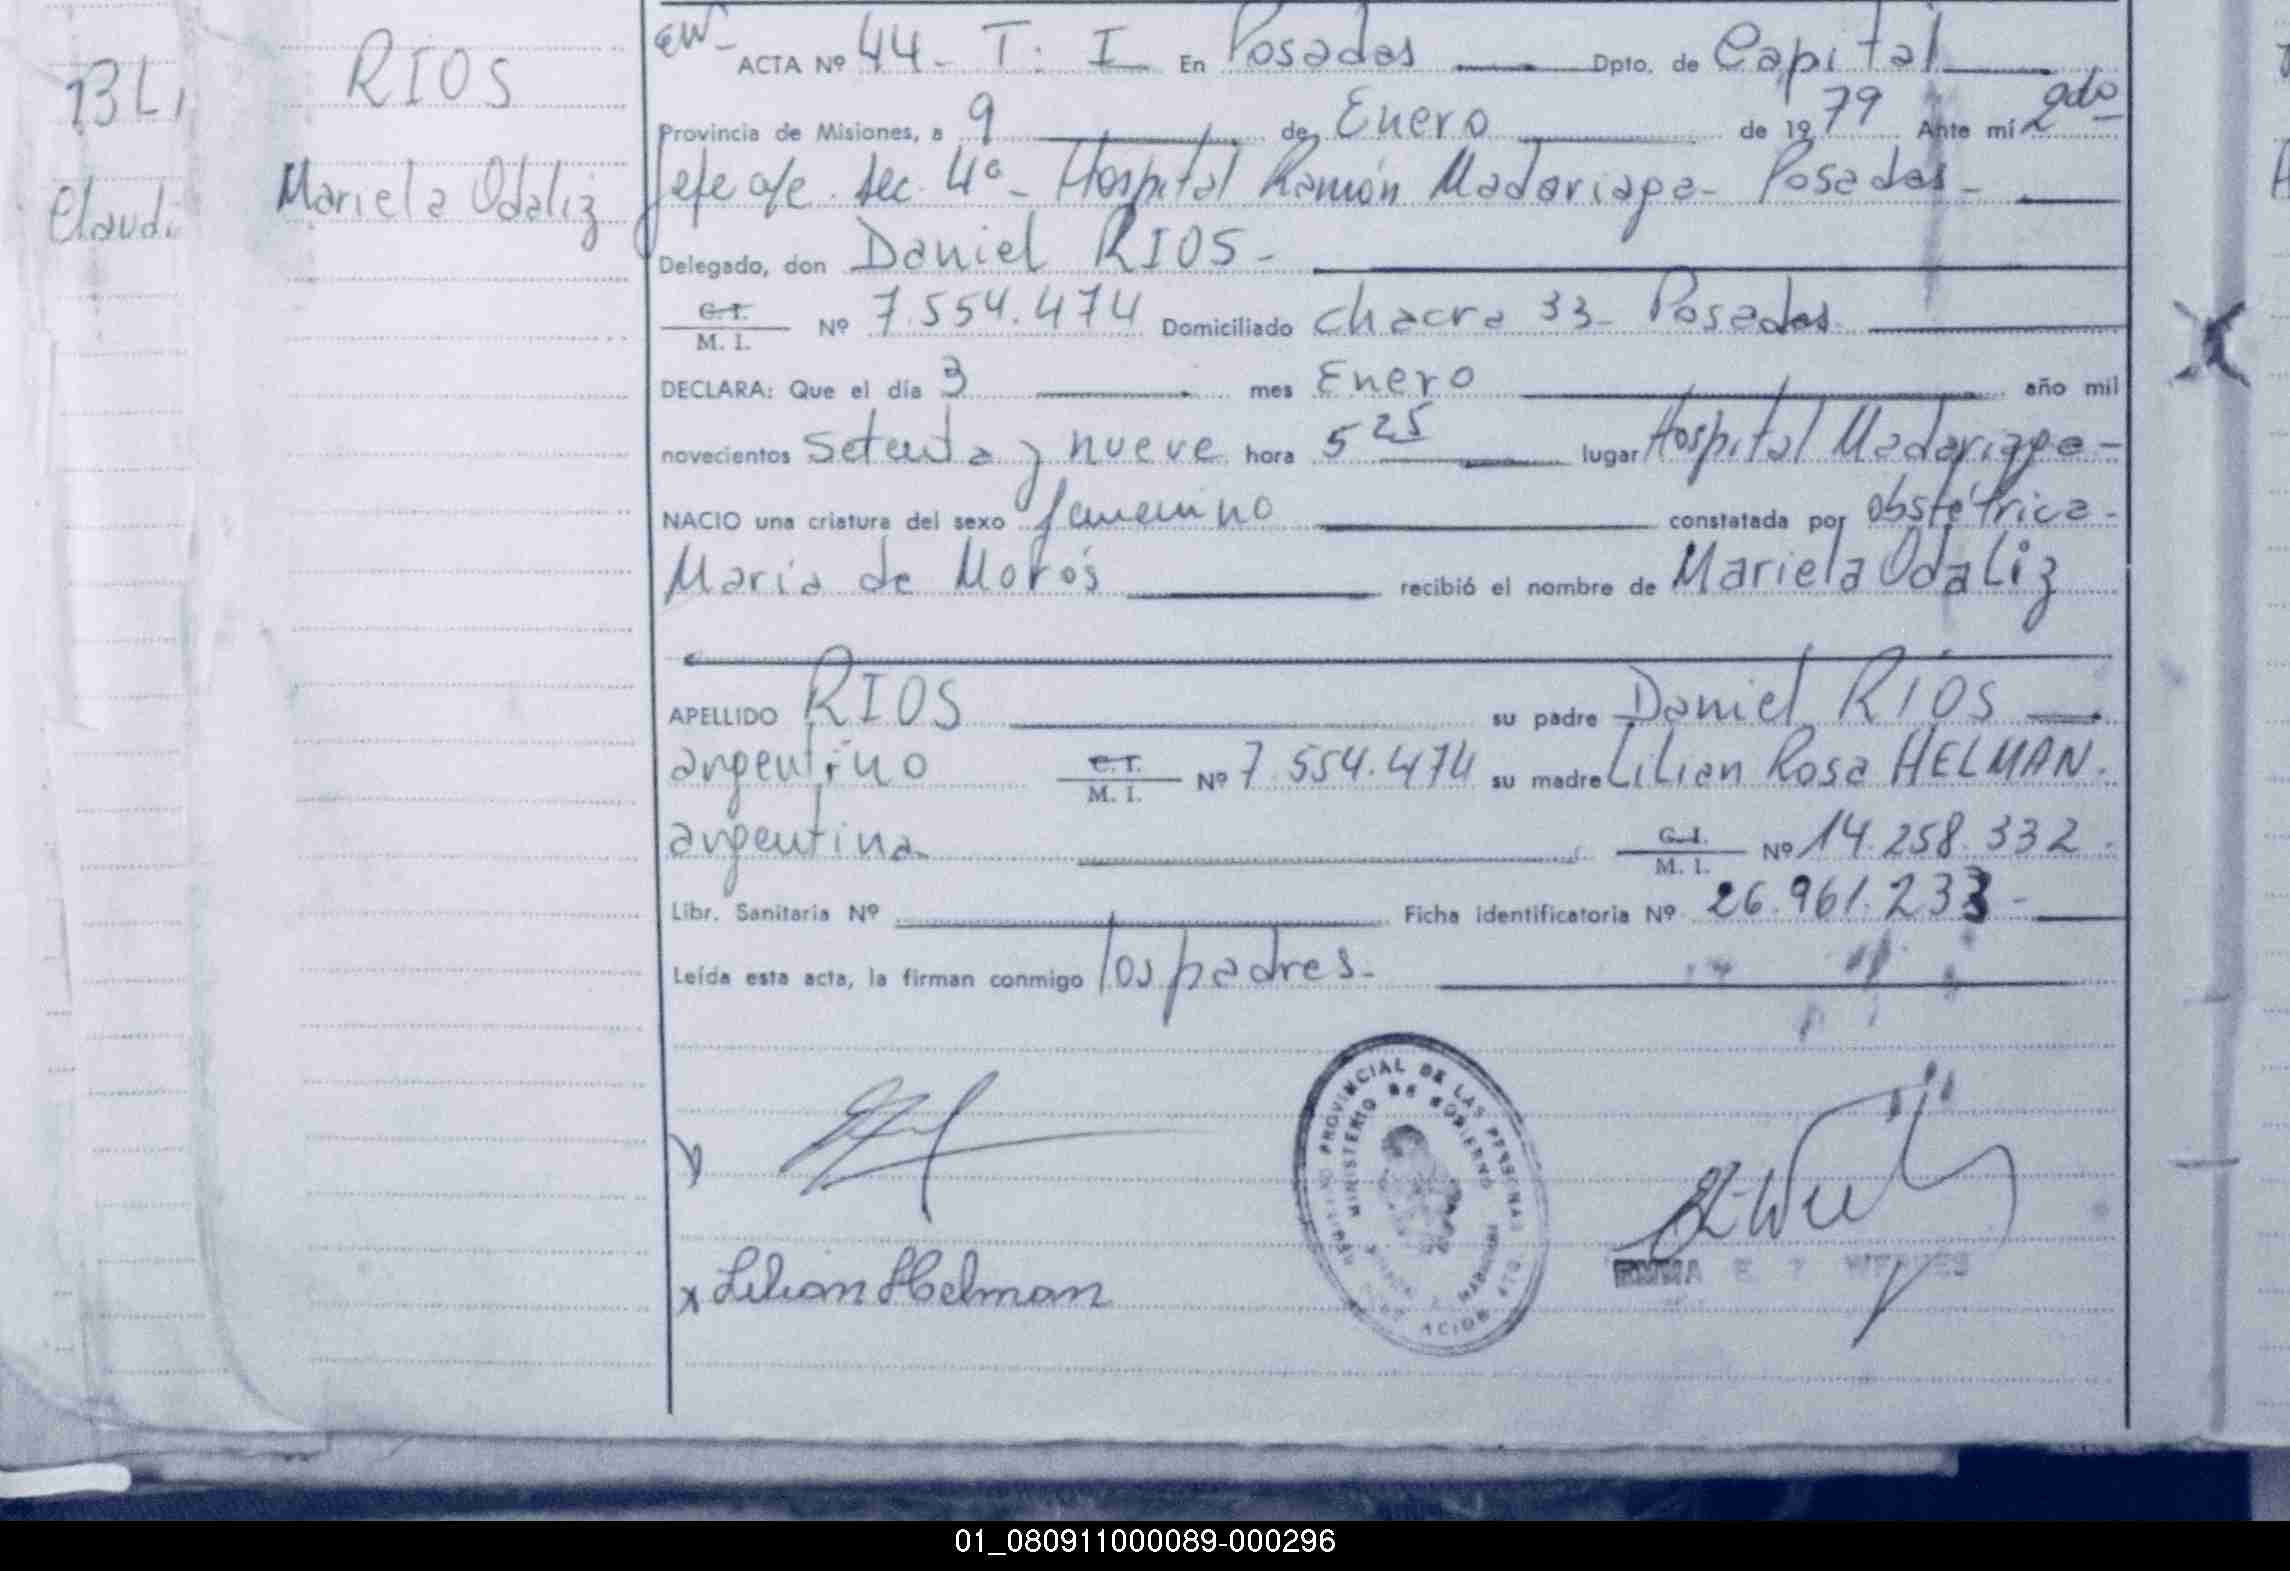 BL
RIOS
Claudi
Mariela Odaliz
EW- ACTA Nº 44- T: I En Posadas Dpto. de Capital
Provincia de Misiones, a 9 de Enero de 1979 Ante mí 2do
Jefe a/c. Sec. 4ª- Hospital Ramón Madariaga- Posadas-
Delegado, don Daniel RIOS-
C. I.
M. I. Nº 7.554.474 Domiciliado chacra 33- Posadas
DECLARA: Que el día 3 mes Enero año mil
novecientos setenta y nueve hora 5 25 lugar Hospital Madariaga-
NACIO una criatura del sexo femenino constatada por obstétrica-
María de recibió el nombre de Mariela Odaliz
APELLIDO RIOS su padre Daniel RIOS
argentino C. I. M. I. Nº 7.554.474 su madre Lilian Rosa HELMAN.
argentina C. I. M. I. Nº 14.258.332.
Libr. Sanitaria Nº Ficha identificatoria Nº 26.961.233-
Leída esta acta, la firman conmigo los padres-
PROVINCIAL DE LAS PERSONAS
MINISTERIO DE GOBIERNO
x Lilian Helman
EMMA
01_080911000089-000296